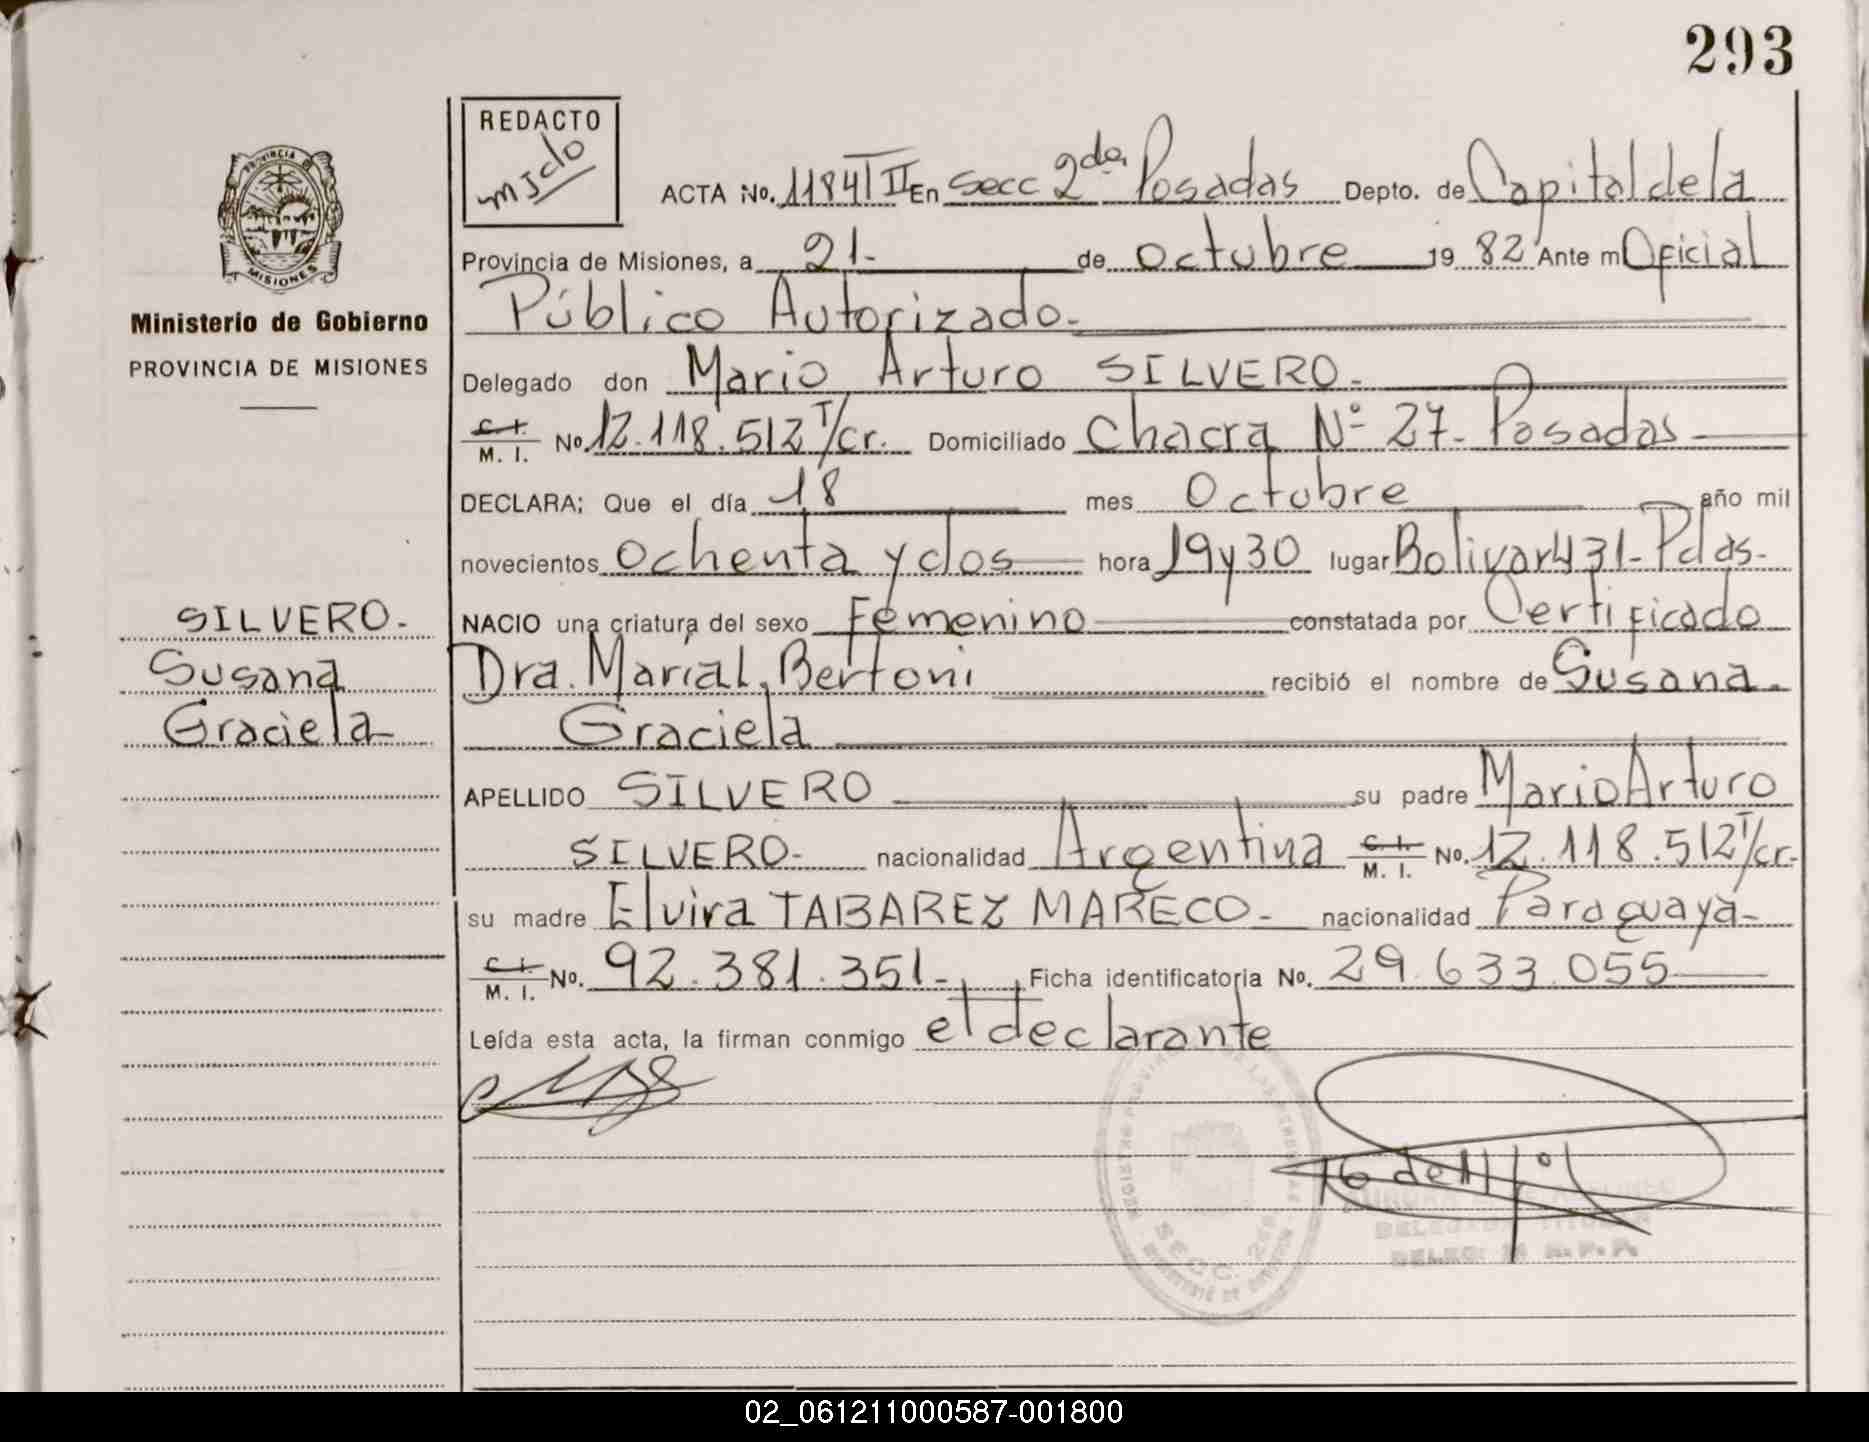 293
REDACTO
ACTA No. 1184 T II En Secc 2da. Posadas Depto. de Capital de la
Provincia de Misiones, a 21- de Octubre 1982 Ante mí Oficial
Público Autorizado-
Delegado don Mario Arturo SILVERO-
C. I.
M. I. No 12.118.512 T/cr. Domiciliado Chacra Nº 27- Posadas
DECLARA; Que el día 18 mes Octubre año mil
novecientos Ochenta y dos hora 19 y 30 lugar Bolivar 431- Pdas-
NACIO una criatura del sexo Femenino constatada por Certificado
Dra. María L. Bertoni recibió el nombre de Susana
Graciela
APELLIDO SILVERO su padre Mario Arturo
SILVERO- nacionalidad Argentina C. I. M. I. No. 12.118.512 T/cr-
su madre Elvira TABAREZ MARECO- nacionalidad Paraguaya-
C. I.
M. I. No. 92.381.351- Ficha identificatoria No. 29.633.055
Leída esta acta, la firman conmigo el declarante
PROVINCIA
MISIONES
Ministerio de Gobierno
PROVINCIA DE MISIONES
SILVERO-
Susana
Graciela
SECC. 2da.
02_061211000587-001800